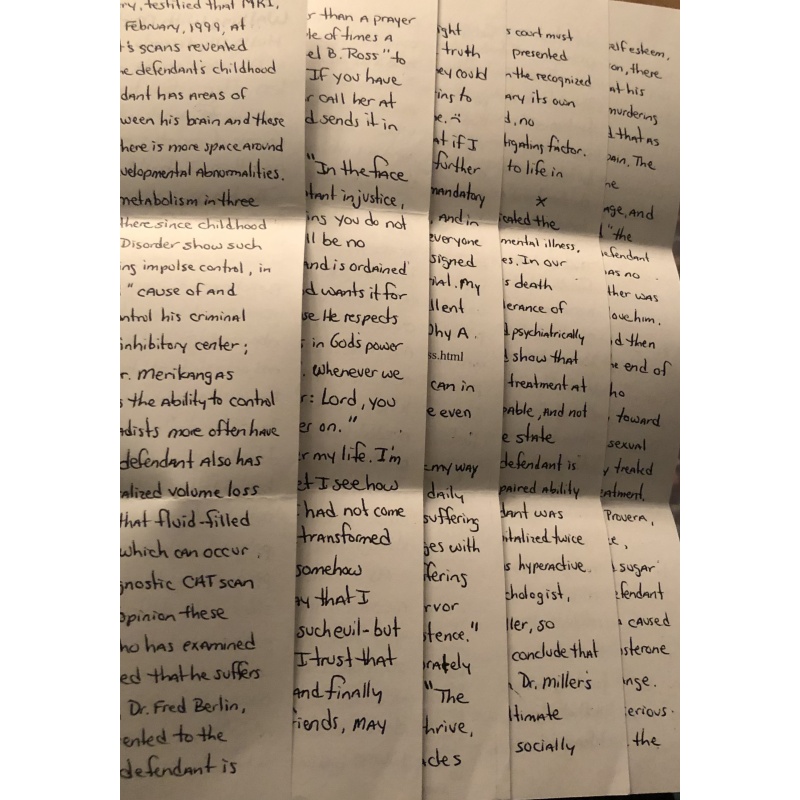 ry, testified that MRI,
February, 1999, at
t's scans revealed
e defendant's childhood
dant has areas of
ween his brain and these
here is more space around
velopmental Abnormalities.
metabolism in three
there since childhood
Disorder show such
ng impulse control, in
"cause of and
ntrol his criminal
inhibitory center;
r. Merikangas
s the ability to control
dists more often have
defendant also has
alized volume loss
that fluid-filled
which can occur.
gnostic CAT scan
opinion these
ho has examined
ed that he suffers
Dr. Fred Berlin,
ented to the
defendant is
r than a prayer
le of times a
el B. Ross" to
If you have
r call her at
d sends it in
"In the face
tant injustice,
ins you do not
ll be no
and is ordained
d wants it for
se He respects
in God's power
. Whenever we
r: Lord, you
er on."
r my life. I'm
et I see how
had not come
transformed
somehow
ay that I
such evil-but
I trust that
and finally
iends, may
ight
truth
ey could
ing to
e. :)
at if I
further
mandatory
, and in
everyone
signed
ial. My
llent
Why A
ss.html
can in
e even
my way
daily
suffering
ges with
fering
rvor
tence."
rately
"The
hrive,
ades
s court must
presented
n the recognized
ary its own
d, no
tigating factor.
to life in
x
icated the
mental illness.
es. In our
s death
lerance of
d psychiatrically
d show that
treatment at
pable, and not
e state
defendant is
paired ability
dant was
pitalized twice
s hyperactive.
chologist,
ler, so
conclude that
Dr. Millers
ltimate
socially
self esteem,
on, there
at his
murdering
d that as
pain. The
he
age, and
"the
defendant
has no
ther was
love him.
d then
e end of
ho
toward
sexual
y treated
eatment.
Provera,
e,
sugar
efendant
caused
sterone
nge.
erious.
the